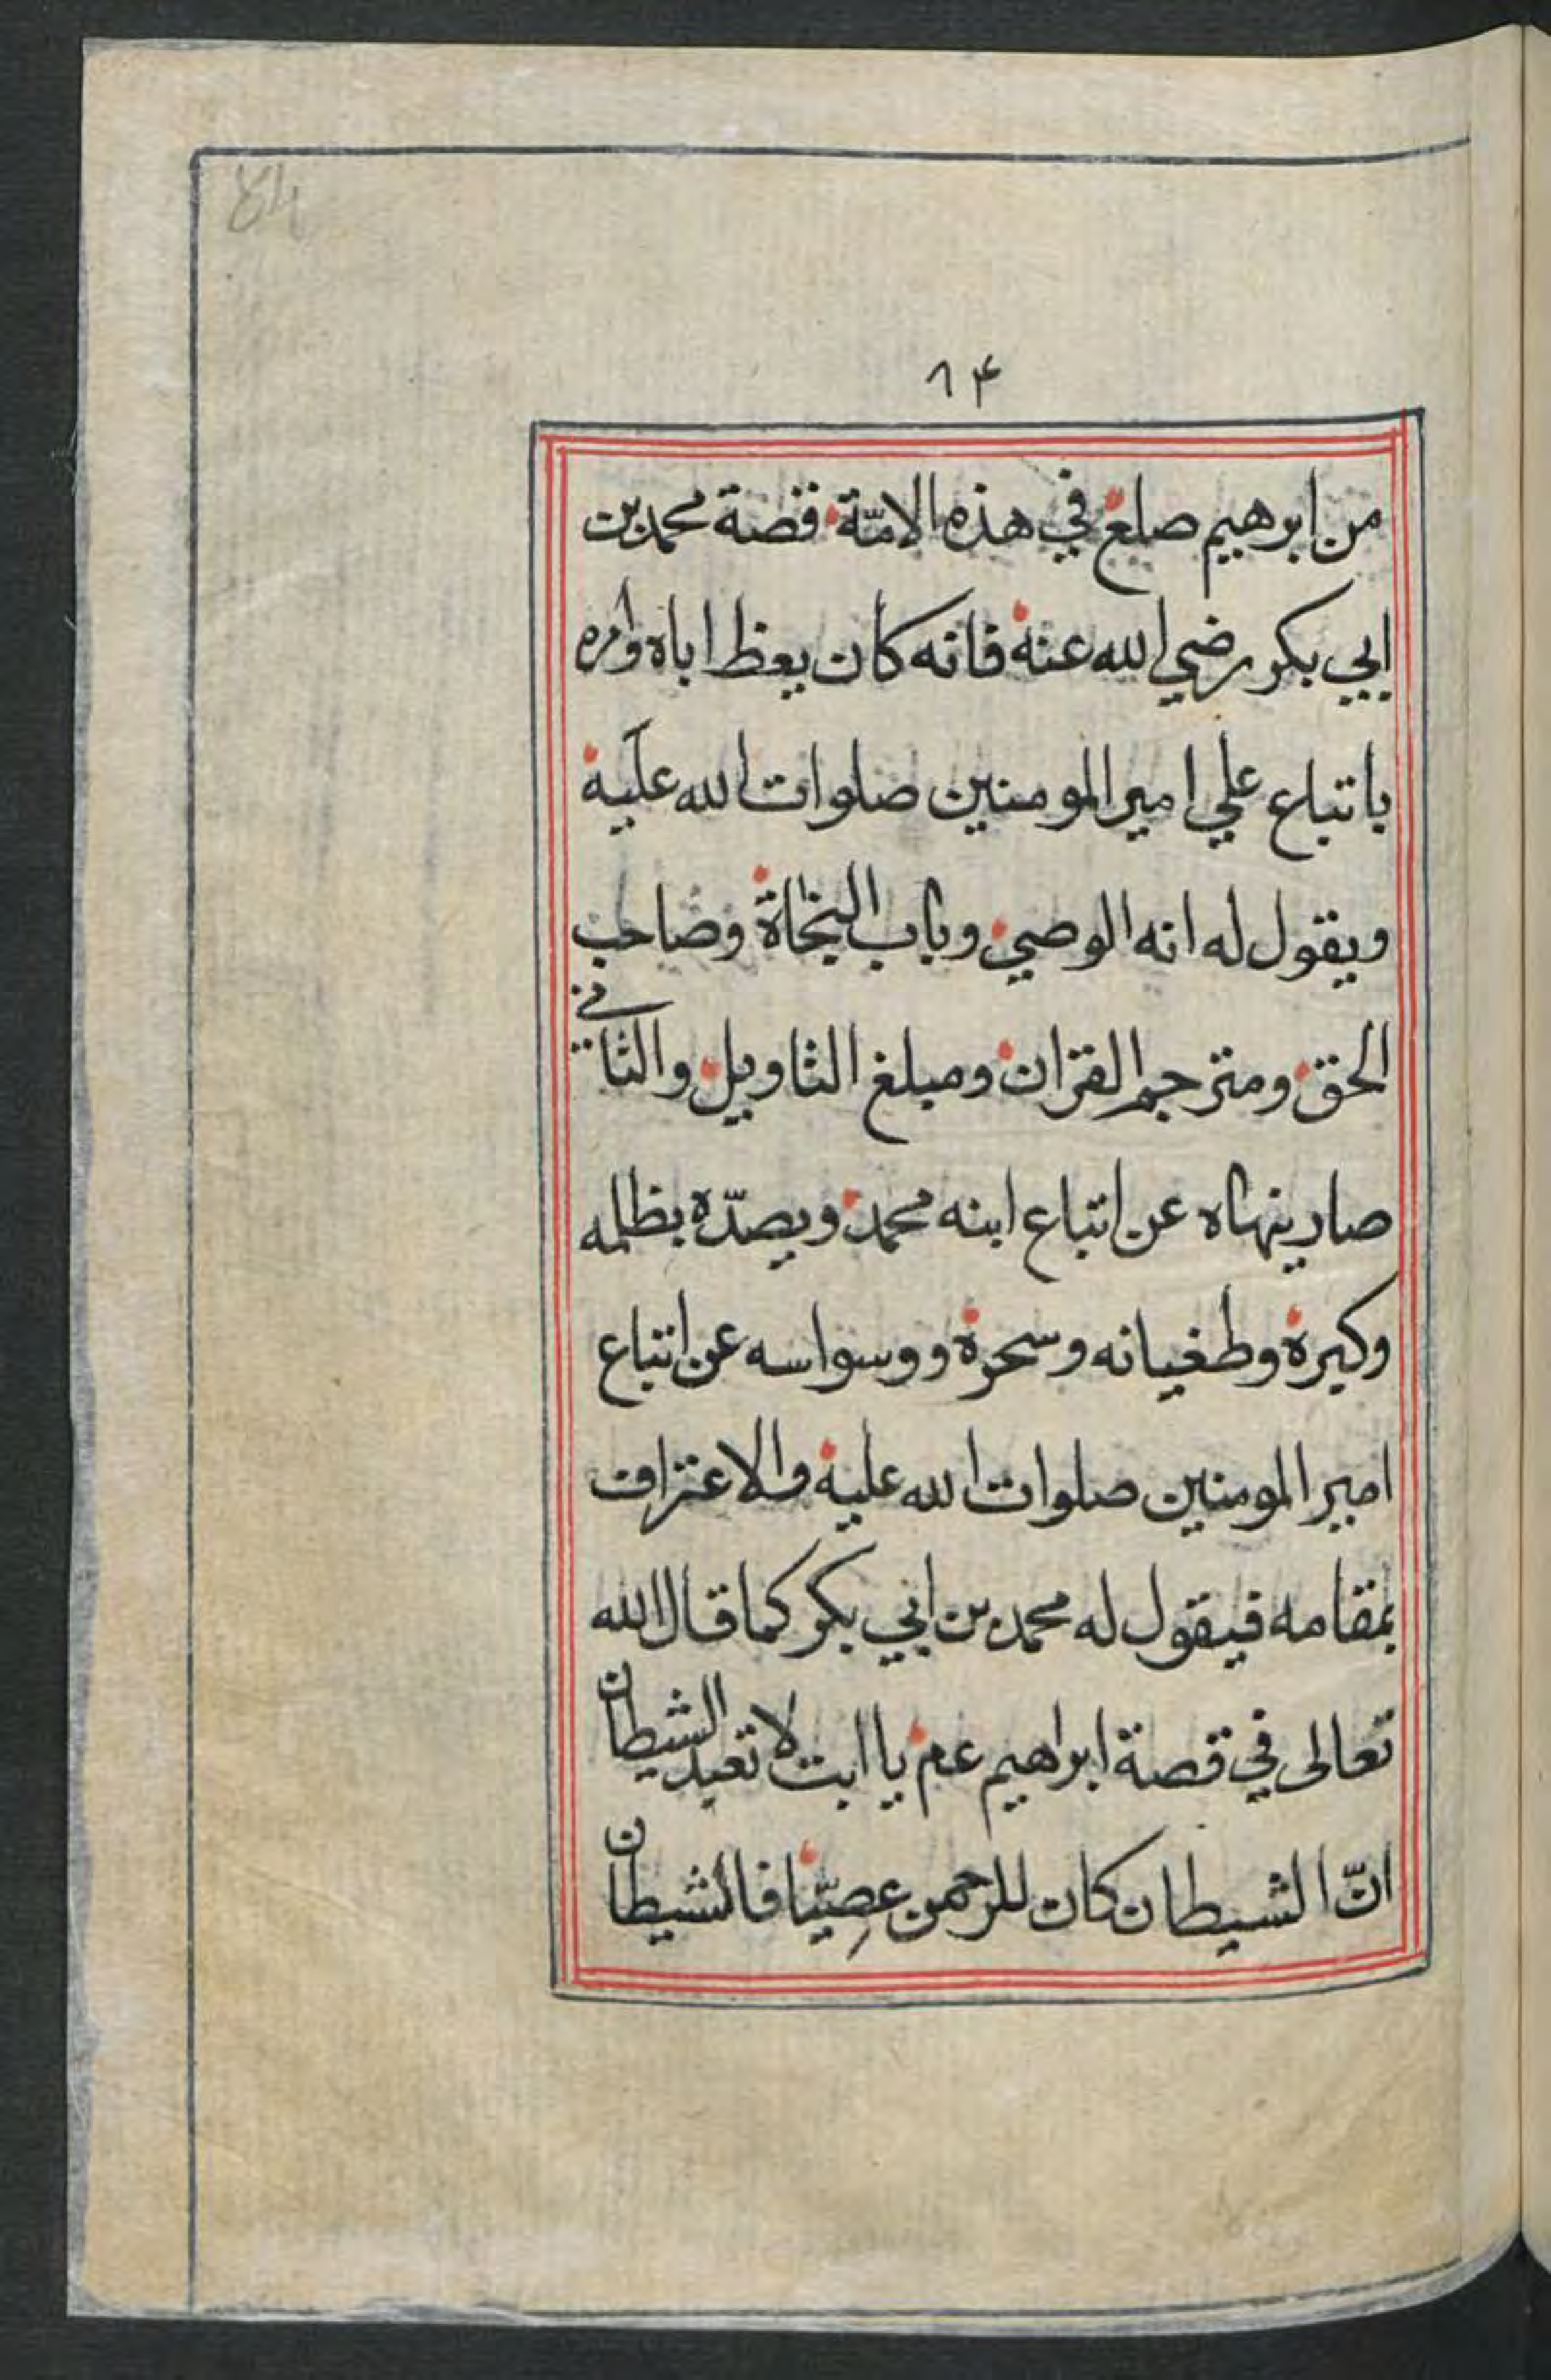 84
٨۴
من ابرهيم صلع في هذه الامّة فقصة محمد بن
ابي بكر رضي الله عنه فانه كان يعظ اباه وامره
باتباع علي امير المومنين صلوات الله عليه
ويقول له انه الوصي وباب النجاة وصاحب
الحق ومترجم القران ومبلغ التاويل والثاني
صار ينهاه عن اتباع ابنه محمد ويصدّه بظلمه
وكبره وطغيانه وسحره ووسواسه عن اتباع
امير المومنين صلوات الله عليه والاعتراف
بمقامه فيقول له محمد بن ابي بكر كما قال الله
تعالى في قصة ابراهيم عم يا ابت لا تعبد الشيطان
انّ الشيطان كان للرحمن عصيّا فالشيطان